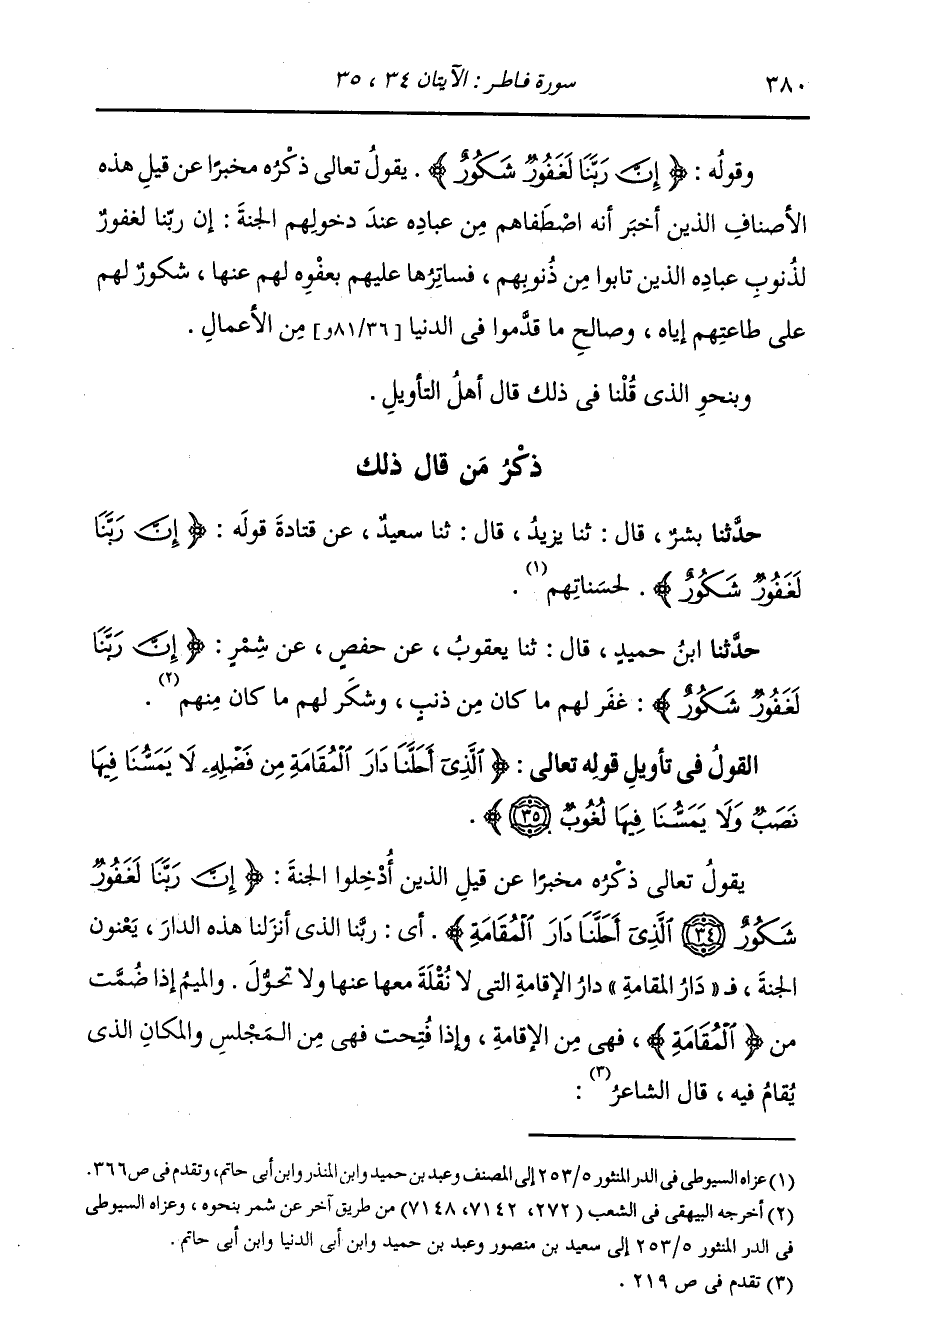 ٣٨٠ سورة فاطر : الآيتان ٣٤ ، ٣٥
وقولُه : ﴿ إِنَّ رَبَّنَا لَغَفُورٌ شَكُورٌ ﴾ . يقولُ تعالى ذكْرُه مخبرًا عن قيلِ هذه
الأصنافِ الذين أخبَر أنه اصْطَفاهم مِن عبادِه عندَ دخولِهم الجنةَ : إن ربَّنا لغفورٌ
لذُنوبِ عبادِه الذين تابوا مِن ذُنوبِهم ، فساتِرُها عليهم بعفْوِه لهم عنها ، شكورٌ لهم
على طاعتِهم إياه ، وصالحِ ما قدَّموا فى الدنيا [٨١/٣٦و] مِن الأعمالِ .
وبنحوِ الذى قُلْنا فى ذلك قال أهلُ التأويلِ .
ذكْرُ مَن قال ذلك
حدَّثنا بشرٌ ، قال : ثنا يزيدُ ، قال : ثنا سعيدٌ ، عن قتادةَ قولَه : ﴿ إِنَّ رَبَّنَا
لَغَفُورٌ شَكُورٌ ﴾ . لحسَناتِهم (١) .
حدَّثنا ابنُ حميدٍ ، قال : ثنا يعقوبُ ، عن حفصٍ ، عن شِمْرٍ : ﴿ إِنَّ رَبَّنَا
لَغَفُورٌ شَكُورٌ ﴾ : غفَر لهم ما كان مِن ذنبٍ ، وشكَر لهم ما كان مِنهم (٢) .
القولُ فى تأويلِ قولِه تعالى : ﴿ ٱلَّذِىٓ أَحَلَّنَا دَارَ ٱلْمُقَامَةِ مِن فَضْلِهِۦ لَا يَمَسُّنَا فِيهَا
نَصَبٌ وَلَا يَمَسُّنَا فِيهَا لُغُوبٌ ٣٥ ﴾ .
يقولُ تعالى ذكْرُه مخبرًا عن قيلِ الذين أُدْخِلوا الجنةَ : ﴿ إِنَّ رَبَّنَا لَغَفُورٌ
شَكُورٌ ٣٤ ٱلَّذِىٓ أَحَلَّنَا دَارَ ٱلْمُقَامَةِ ﴾ . أى : ربُّنا الذى أنزلنا هذه الدارَ ، يَعْنون
الجنةَ ، فـ « دَارُ المقامةِ » دارُ الإقامةِ التى لا نُقْلَةَ معها عنها ولا تحوُّلَ . والميمُ إذا ضُمَّت
من ﴿ ٱلْمُقَامَةِ ﴾ ، فهى مِن الإقامةِ ، وإذا فُتِحت فهى مِن المَجْلسِ والمكانِ الذى
يُقامُ فيه ، قال الشاعرُ (٣) :
(١) عزاه السيوطى فى الدر المنثور ٢٥٣/٥ إلى المصنف وعبد بن حميد وابن المنذر وابن أبى حاتم، وتقدم فى ص٣٦٦.
(٢) أخرجه البيهقى فى الشعب (٢٧٢، ٧١٤٢، ٧١٤٨) من طريق آخر عن شمر بنحوه ، وعزاه السيوطى
فى الدر المنثور ٢٥٣/٥ إلى سعيد بن منصور وعبد بن حميد وابن أبى الدنيا وابن أبى حاتم .
(٣) تقدم فى ص ٢١٩ .